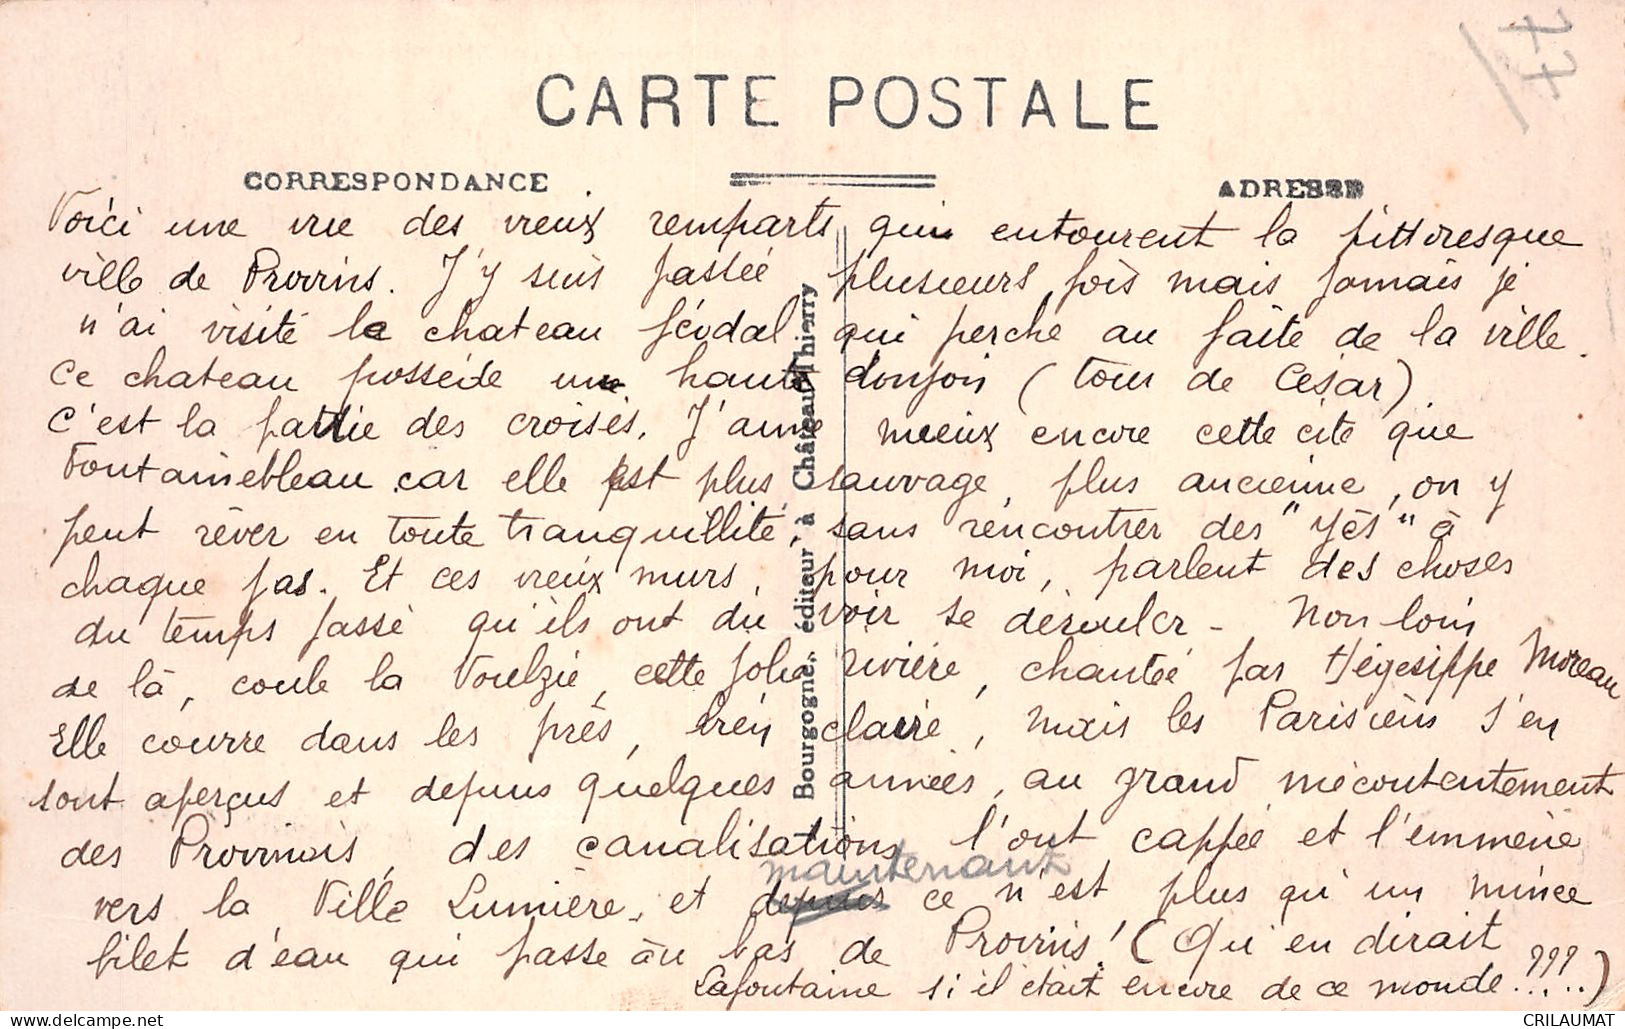 77
CARTE POSTALE
CORRESPONDANCE
ADRESSE
Voici une vue des vieux remparts qui entourent la pittoresque
ville de Provins. J'y suis passée plusieurs fois mais jamais je
n'ai visité le chateau féodal qui perche au faîte de la ville.
Ce chateau possède un haut donjon (tour de César)
C'est la partie des croisés. J'aime mieux encore cette cité que
Fontainebleau car elle est plus sauvage, plus ancienne, on y
peut rêver en toute tranquillité, sans rencontrer des "Yès" à
chaque pas. Et ces vieux murs, pour moi, parlent des choses
du temps passé qu'ils ont du voir se dérouler - Non loin
de là, coule la Voulzie, cette jolie rivière, chantée par Hégésippe Moreau
Elle courre dans les prés, bien claire, mais les Parisiens s'en
sont aperçus et depuis quelques années, au grand mécontentement
des Provinois, des canalisations l'ont cappée et l'emmène
vers la Ville Lumière, et depuis maintenant ce n'est plus qu'un mince
filet d'eau qui passe au bas de Provins! (Qu'en dirait
Lafontaine si il était encore de ce monde???...)
Bourgogne, éditeur à Château-Thierry
CRILAUMAT